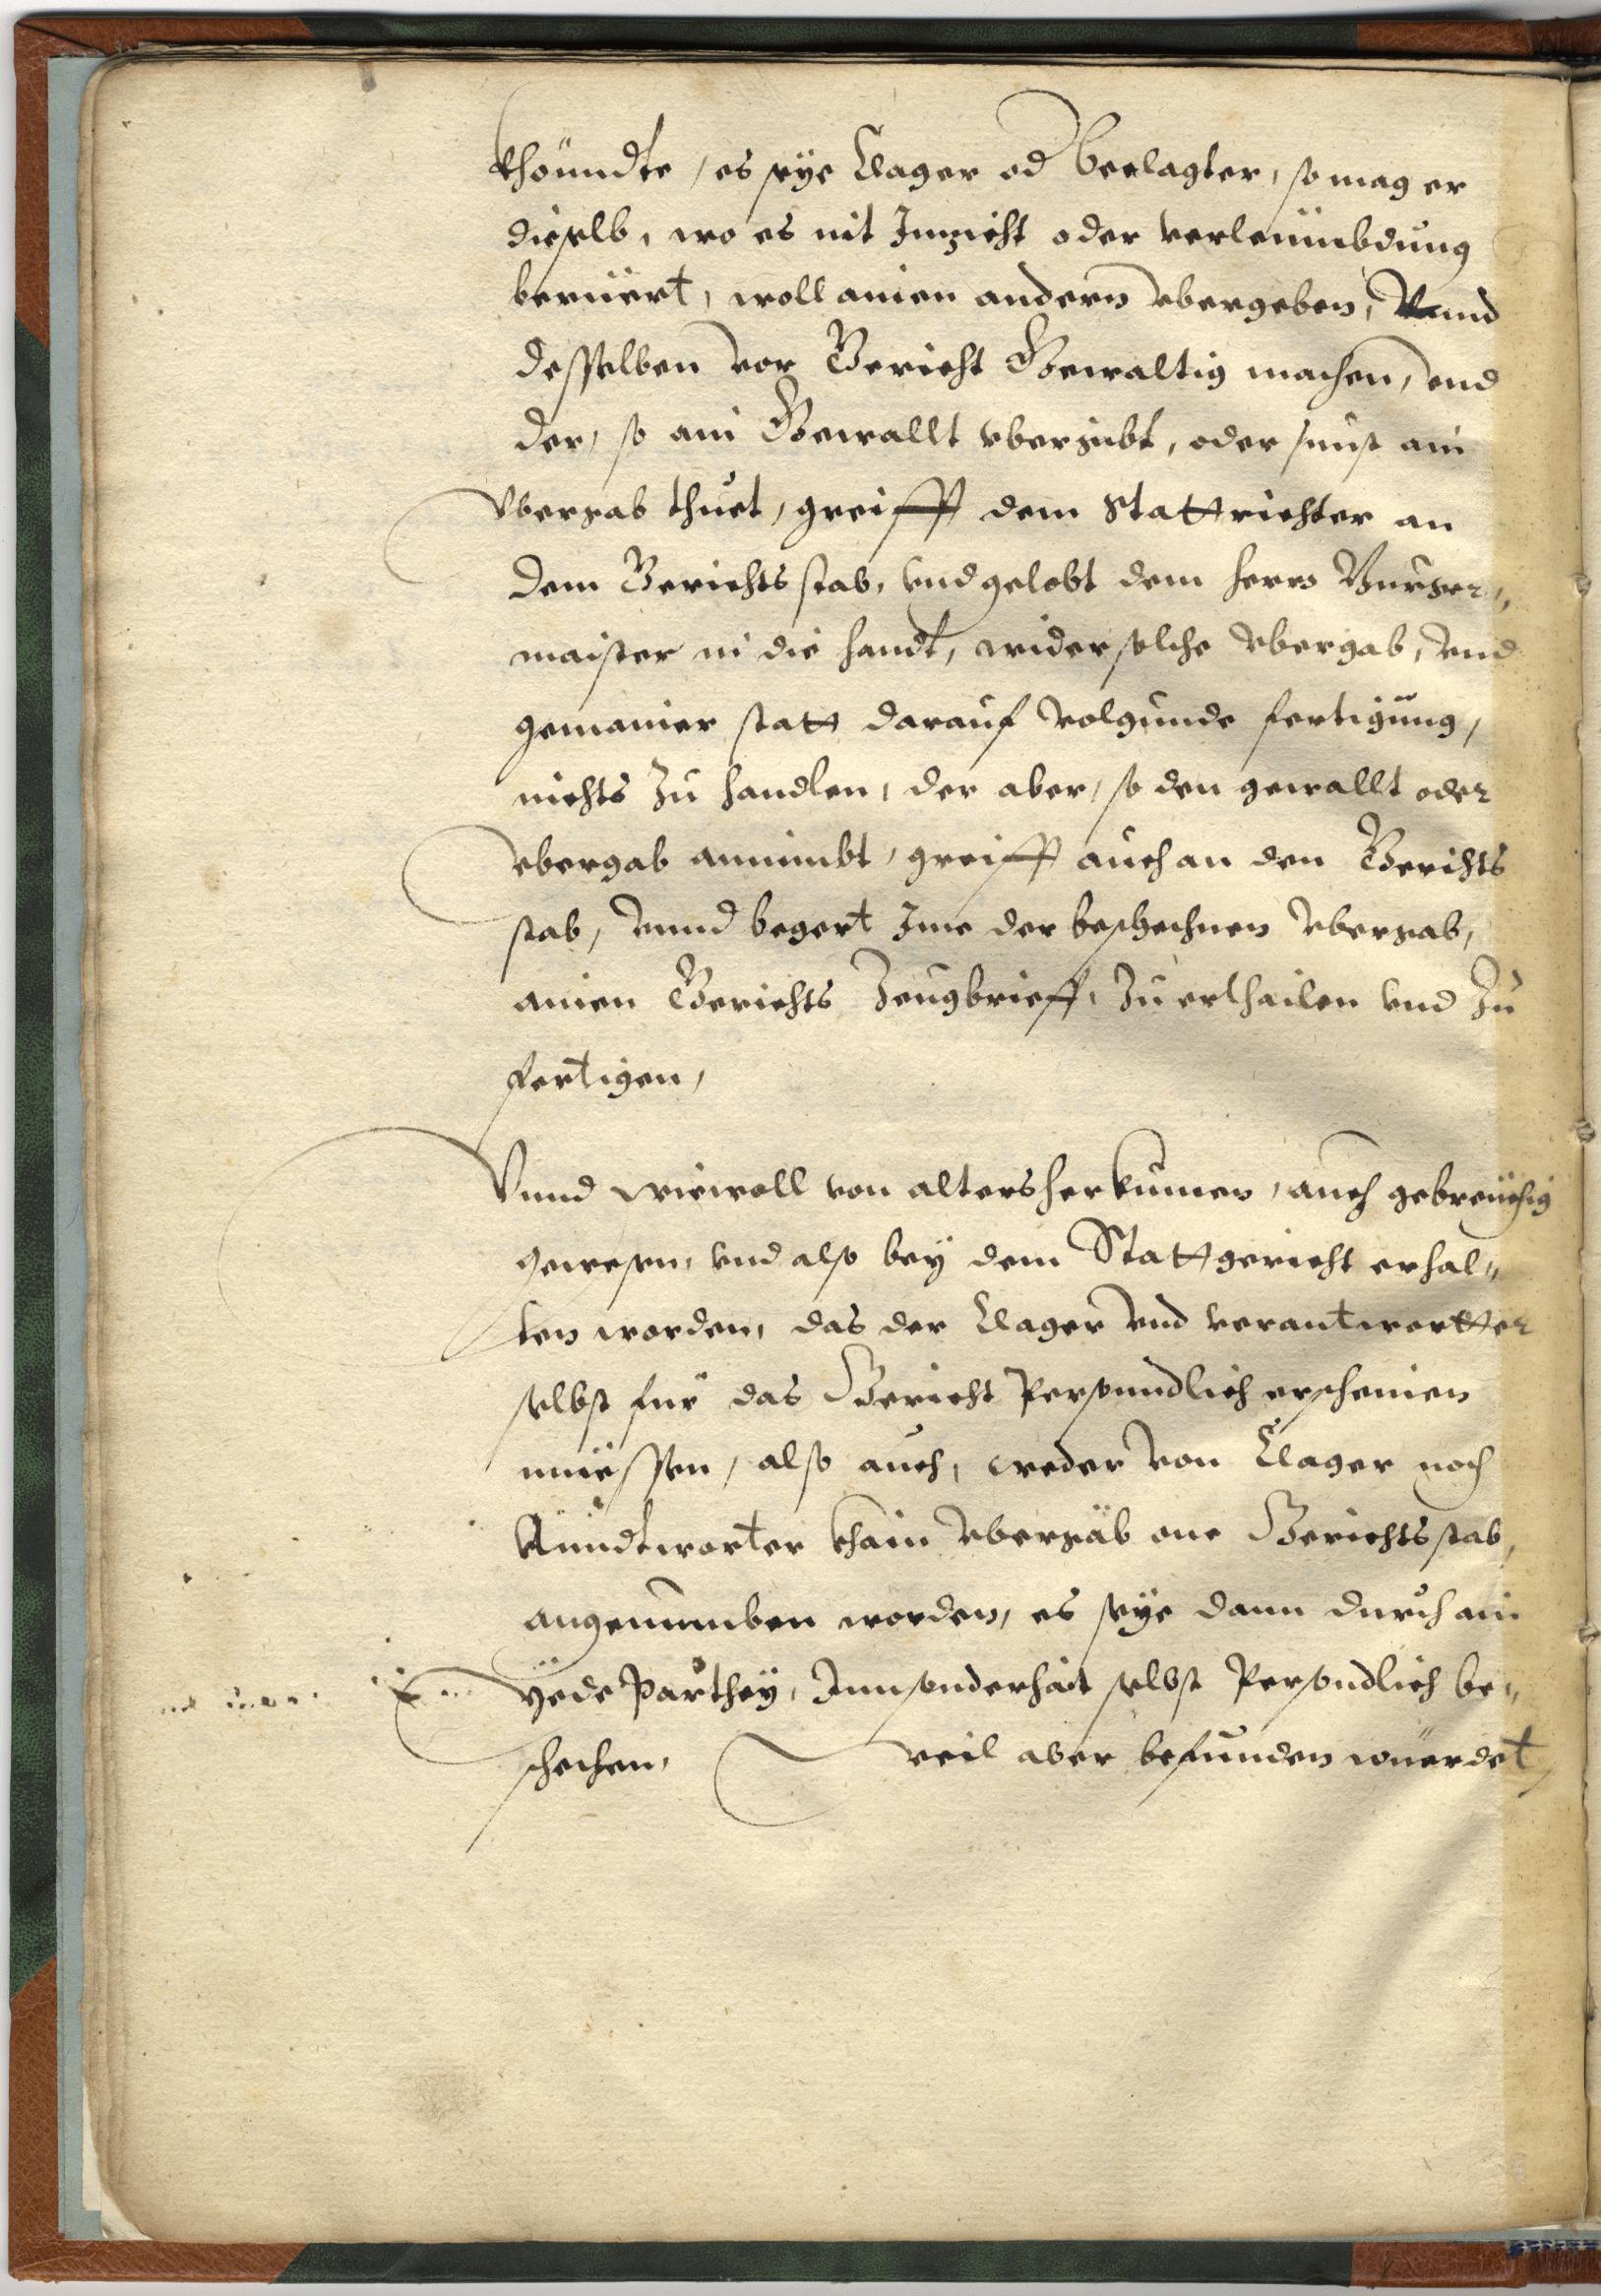 khöundte, es seÿe Clager od beclagter, so mag er
dieselb, wo es nit Inzicht oder verleümbdung
berüert, woll ainen andern vbergeben, Vnnd
desselben vor Gericht Gewaltig machen, vnd
der, so ain Gewallt vbergibt, oder sunst ain
Vbergab thuet, greifft dem Stattrichter an
dem Gerichts stab, vnd gelobt dem herrn Burger„
maister in die handt, wider solche vbergab, vnd
gemainer statt darauf volgunde fertigung,
nichts zu handlen, der aber, so den gewallt oder
vbergab annimbt, greifft auch an den Gerichts
stab, vnnd begert Ime der beschechnen vbergab,
ainen Gerichts Zeugbrieff, zu erthailen vnd zu
fertigen,
Vnnd wiewoll von alters herkumen, auch gebreüchig
gewesen, vnd also bey dem Stattgericht erhal„
ten worden, das der Clager vnd verantwortter
selbst für das Gericht Persundlich erscheinen
müessen, also auch, weder von Clager noch
Anndtworter khain vbergab one Gerichts stab,
angenumben worden, es seÿe dann durch ain
ÿede Parthey, Innsonderhait selbst Persondlich be„
schechen, weil aber befunden würdet